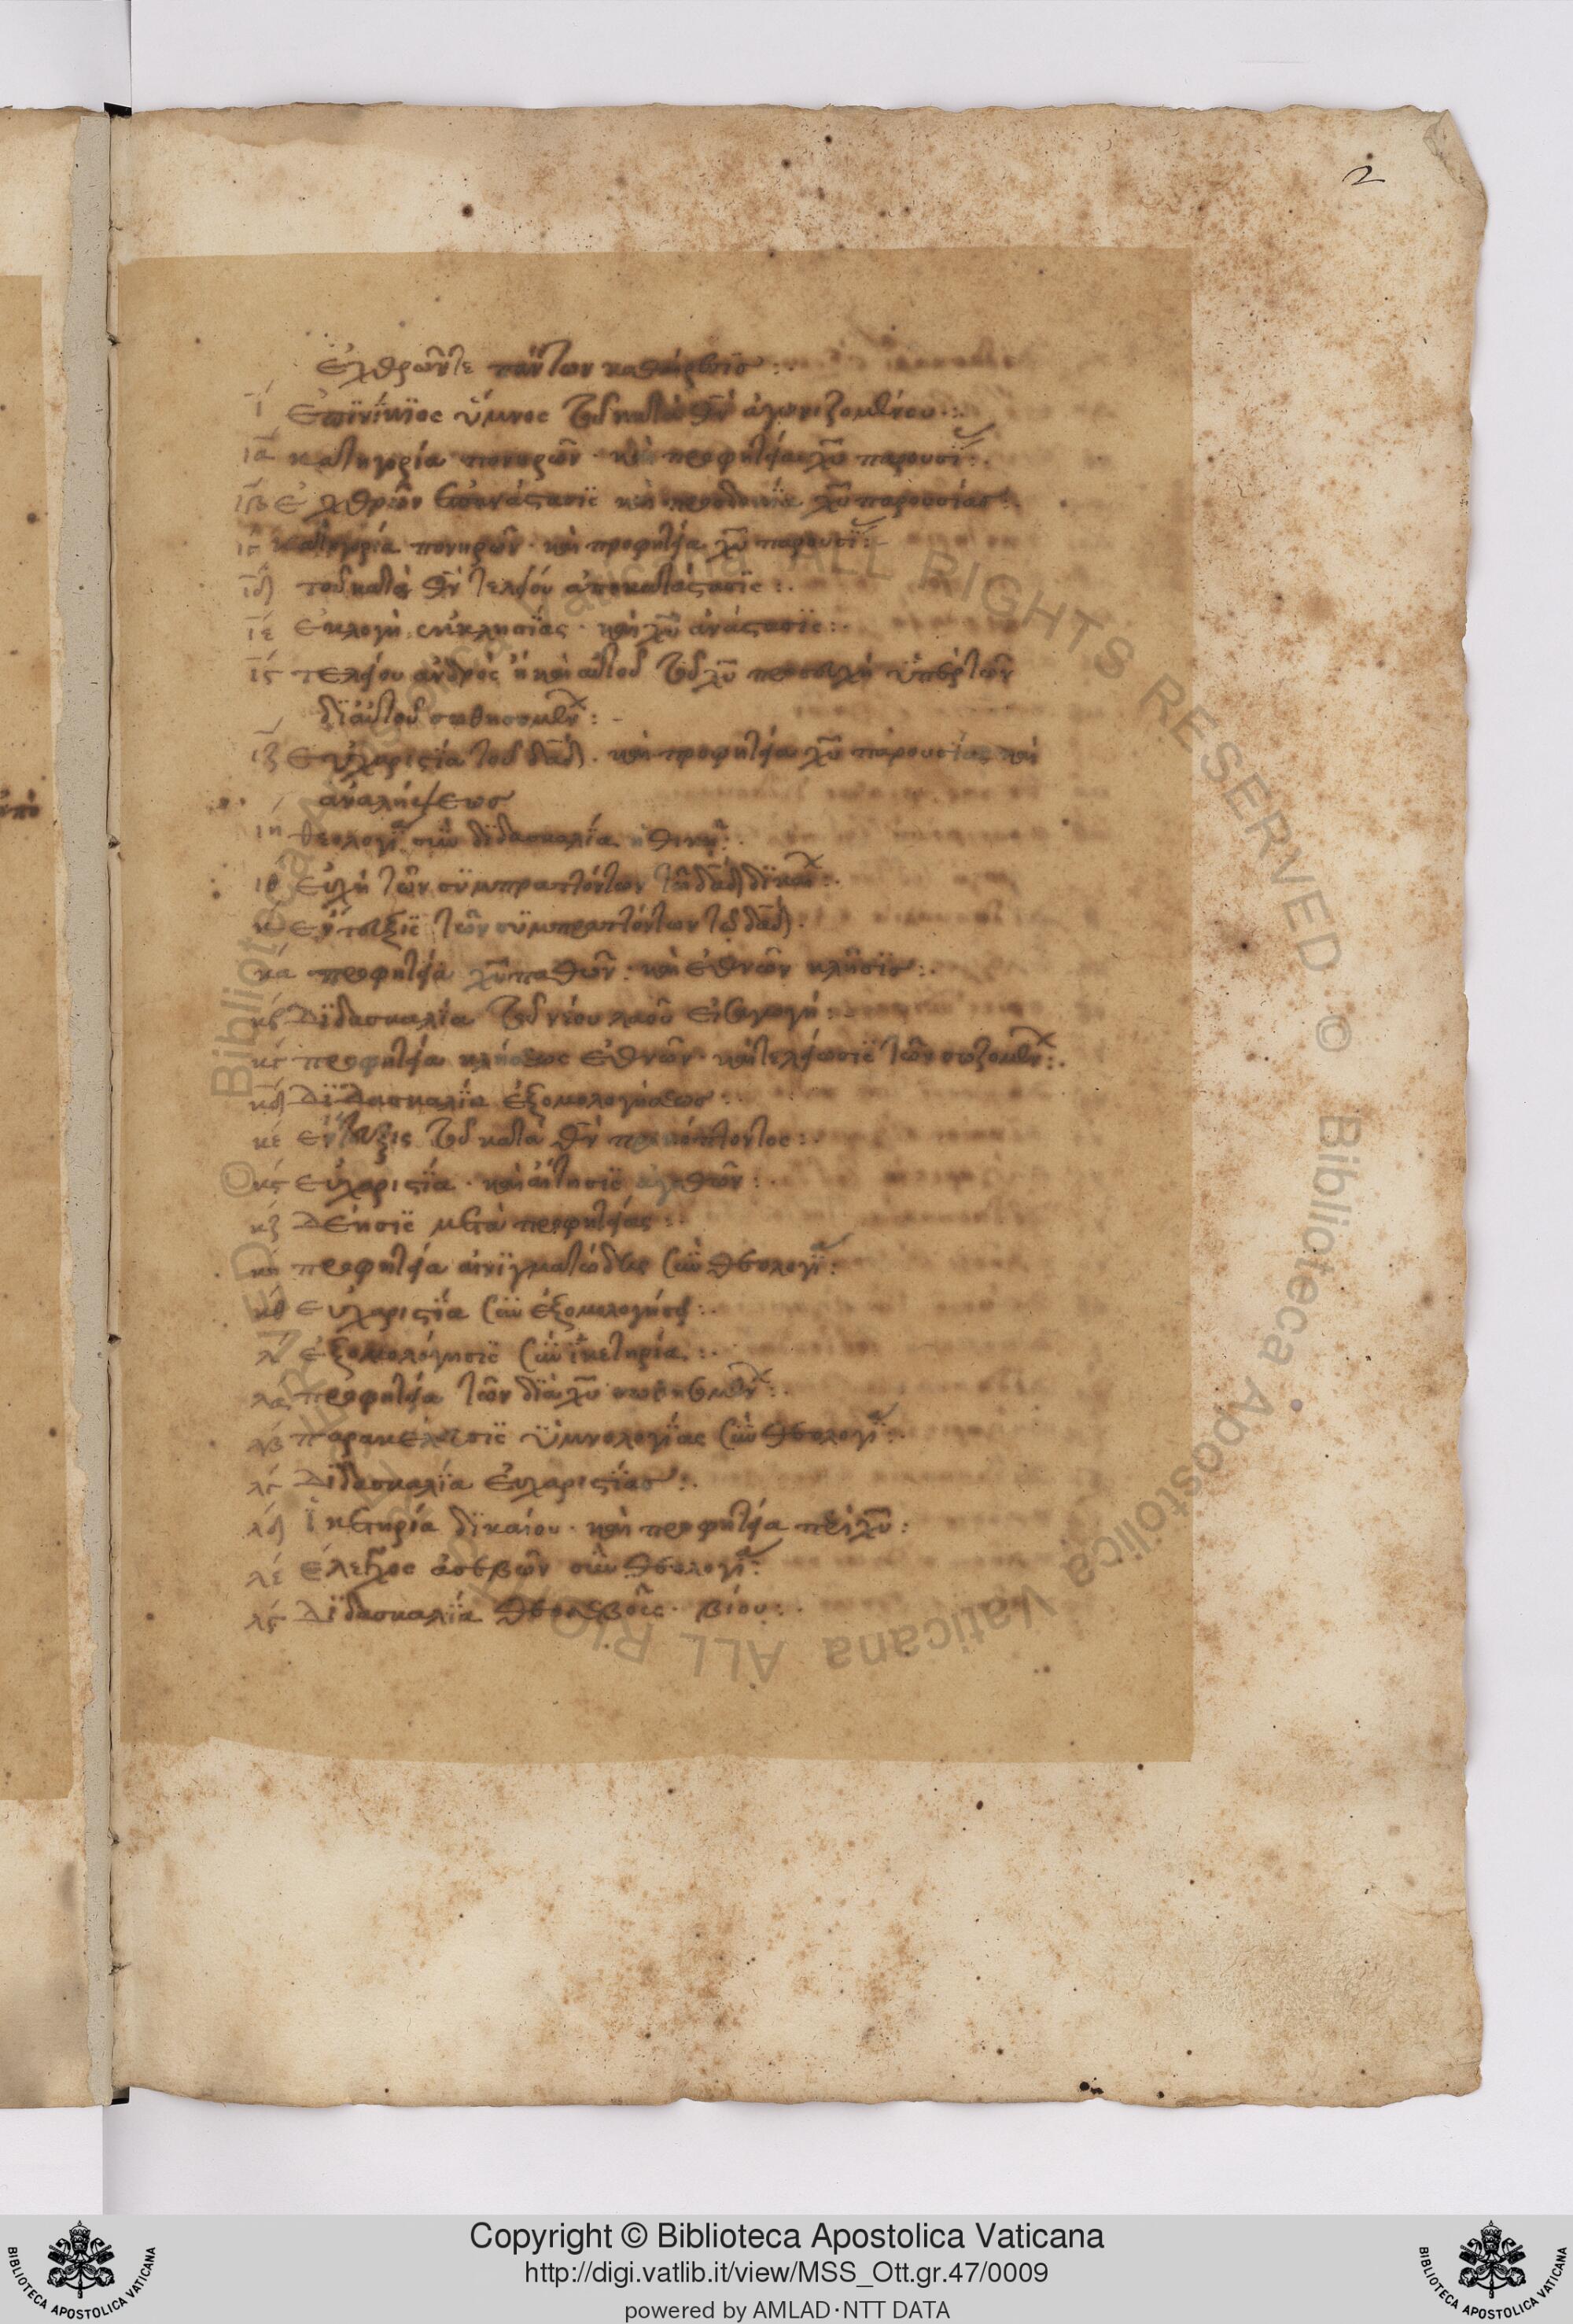 2
ἐχθρῶν τε πάντων καθαίρεσις :.
ι ἐπινίκιος ὕμνος τοῦ κατὰ θν ἀγωνιζομένου :.
ια κατηγορία πονηρῶν · καὶ προφητεία χυ παρουσί :.
ιβ ἐχθρῶν ἐπανάστασις καὶ προσδοκία χυ παρουσίας :.
ιγ κατηγορία πονηρῶν · καὶ προφητεία χυ παρουσί :
ιδ τοῦ κατὰ θν τελείου ἀποκατάστασις :.
ιε ἐκλογὴ ἐκκλησίας · καὶ χυ ἀνάστασις :.
ις τελείου ἀνδρὸς ἢ καὶ αὐτοῦ τοῦ χυ προσευχὴ ὑπὲρ τῶν
δι αὐτοῦ σωθησομεν :-
ιζ εὐχαριστία τοῦ δαδ · καὶ προφητεία χυ παρουσίας καὶ
ἀναλήψεως
ιη θεολογί σὺν διδασκαλία ἠθικῇ :.
ιθ εὐχὴ τῶν συμπραττόντων τῷ δαδ δικαι :.
κ ἔντευξις τῶν συμπραττόντων τῷ δαδ ·
κα προφητεία χυ παθῶν · καὶ ἐθνῶν κλῆσις :.
κβ διδασκαλία τοῦ νέου λαοῦ εἰσαγωγή :
κγ προφητεία κλήσεως ἐθνῶν · καὶ τελείωσις τῶν σωζομεν :.
κδ διδασκαλία ἐξομολογήσεως :
κε ἔντευξις τοῦ κατὰ θν προκόπτοντος :.
κς εὐχαριστία · καὶ αἴτησις ἀγαθῶν :.
κζ δέησις μετὰ προφητείας :.
κη προφητεία αἰνιγματώδης σὺν θεολογί :
κθ εὐχαριστία σὺν ἐξομολογήσει :.
λ ἐξομολόγησις σὺν ἱκετηρία :.
λα προφητεία τῶν διὰ χυ σωθησομεν :.
λβ παρακέλευσις ὑμνολογίας σὺν θεολογί :.
λγ διδασκαλία εὐχαριστίας :.
λδ ἱκετηρία δικαίου · καὶ προφητεία περὶ χυ :
λε ἔλεγχος ἀσεβῶν σὺν θεολογί :
λς διδασκαλία θεοσεβοῦς · βίου :.
Copyright © Biblioteca Apostolica Vaticana
http://digi.vatlib.it/view/MSS_Ott.gr.47/0009
powered by AMLAD·NTT DATA
BIBLIOTECA APOSTOLICA VATICANA
BIBLIOTECA APOSTOLICA VATICANA
© Biblioteca Apostolica Vaticana ALL RIGHTS RESERVED
© Biblioteca Apostolica Vaticana ALL RIGHTS RESERVED